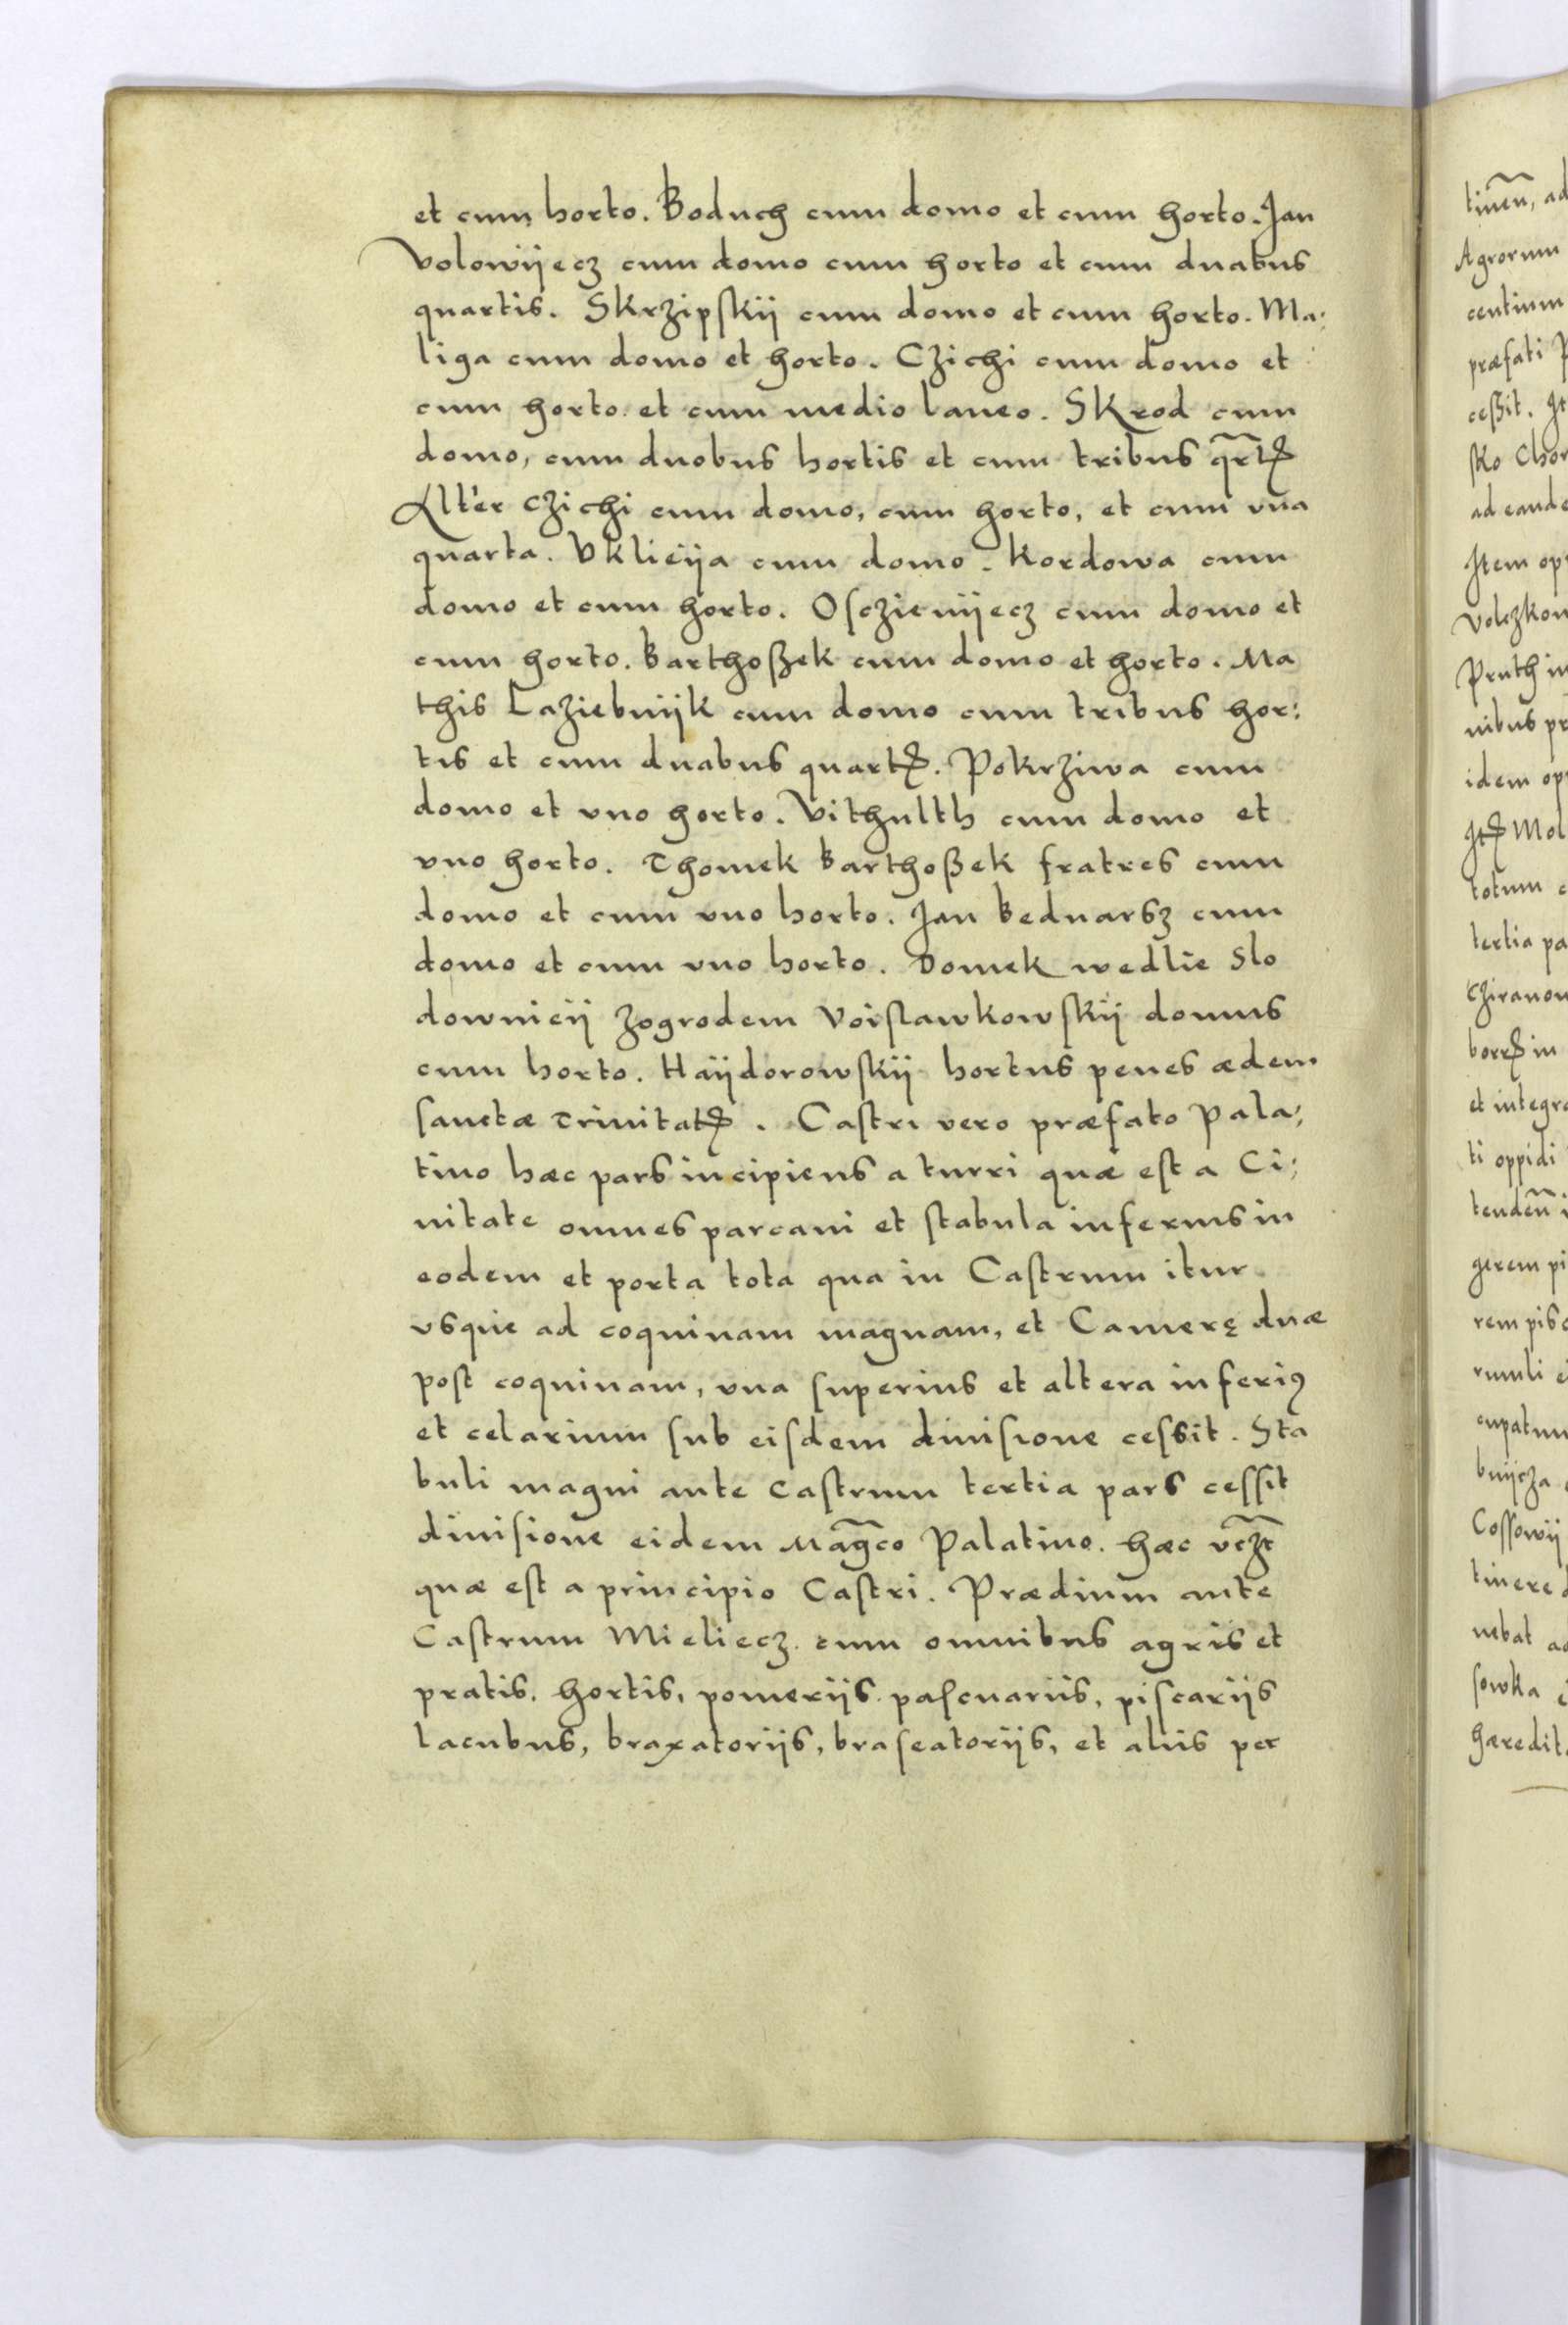 et cum horto. Boduch cum domo et cum horto. Jan
Volowÿecz cum domo cum horto et cum duabus
quartis. Skrzipskÿ cum domo et cum horto. Ma:
liga cum domo et horto. Czichi cum domo et
cum horto. et cum medio laneo. Skrod cum
domo, cum duobus hortis et cum tribus qrtꝭ
Alter Czichi cum domo, cum horto, et cum vna
quarta. Vklieÿa cum domo. Kordowa cum
domo et cum horto. Osczienÿecz cum domo et
cum horto. Barthoßek cum domo et horto. Ma
this Laziebnÿk cum domo cum tribus hor:
tis et cum duabus quartꝭ. Pokrziwa cum
domo et vno horto. Vithulth cum domo et
vno horto. Thomek Barthoßek fratres cum
domo et cum vno horto. Jan Bednarsz cum
domo et cum vno horto. Domek wedlie Slo
downicÿ zogrodem Voislawkowskÿ domus
cum horto. Haÿdorowskÿ hortus penes ædem
sanctæ Trinitatꝭ. Castri vero præfato Pala:
tino hæc pars incipiens a turri quæ est a Ci:
uitate omnes parcani et stabula inferius in
eodem et porta tota qua in Castrum itur
vsque ad coquinam magnam, et Camerę duæ
post coquinam, vna superius et altera inferiꝰ
et celarium sub eisdem diuisione cessit. Sta
buli magni ante castrum tertia pars cessit
diuisione eidem Magco Palatino. hæc vczt
quæ est a principio Castri. Prædium ante
Castrum Mieliecz cum omnibus agris et
pratis, hortis, pomeriis pascuariis, piscariis
lacubus, braxatoriis, braseatoriis, et aliis per
tinen, ad
Agrorum
centium
præfati
ceßit. It
sko Chor
ad eande
Item op
Volczkow
Pruth in
nibus pr
idem op
Itꝭ Mol
totum
tertia pa
Cziranow
borrꝭ in
et integr
ti oppidi
tenden
gerem pi
rem pis
riuuli
cupatum
bnÿcza
Cossowÿ
tinere
nebat a
sowka
hæredit